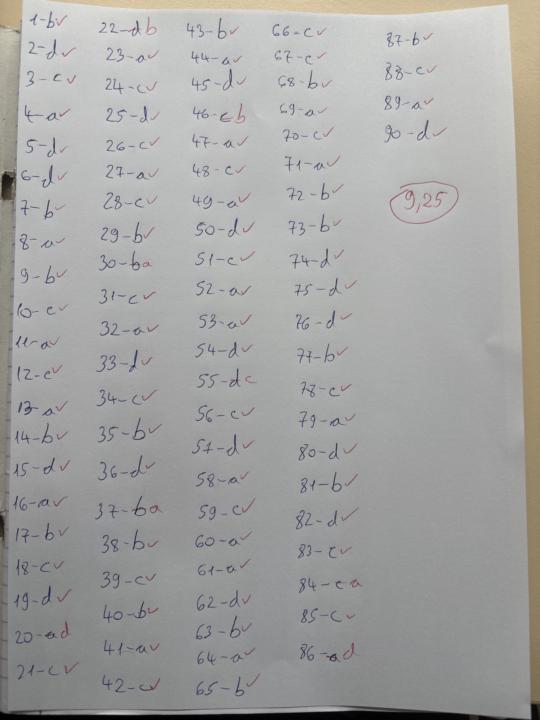 1-b✓
2-d✓
3-c✓
4-a✓
5-d✓
6-d✓
7-b✓
8-a✓
9-b✓
10-c✓
11-a✓
12-c✓
13-a✓
14-b✓
15-d✓
16-a✓
17-b✓
18-c✓
19-d✓
20-a d
21-c✓
22-d b
23-a✓
24-c✓
25-d✓
26-c✓
27-a✓
28-c✓
29-b✓
30-b a
31-c✓
32-a✓
33-d✓
34-c✓
35-b✓
36-d✓
37-b a
38-b✓
39-c✓
40-b✓
41-a✓
42-c✓
43-b✓
44-a✓
45-d✓
46-c b
47-a✓
48-c✓
49-a✓
50-d✓
51-c✓
52-a✓
53-a✓
54-d✓
55-d c
56-c✓
57-d✓
58-a✓
59-c✓
60-a✓
61-a✓
62-d✓
63-b✓
64-a✓
65-b✓
66-c✓
67-c✓
68-b✓
69-a✓
70-c✓
71-a✓
72-b✓
73-b✓
74-d✓
75-d✓
76-d✓
77-b✓
78-c✓
79-a✓
80-d✓
81-b✓
82-d✓
83-c✓
84-c a
85-c✓
86-a d
87-b✓
88-c✓
89-a✓
90-d✓
9,25